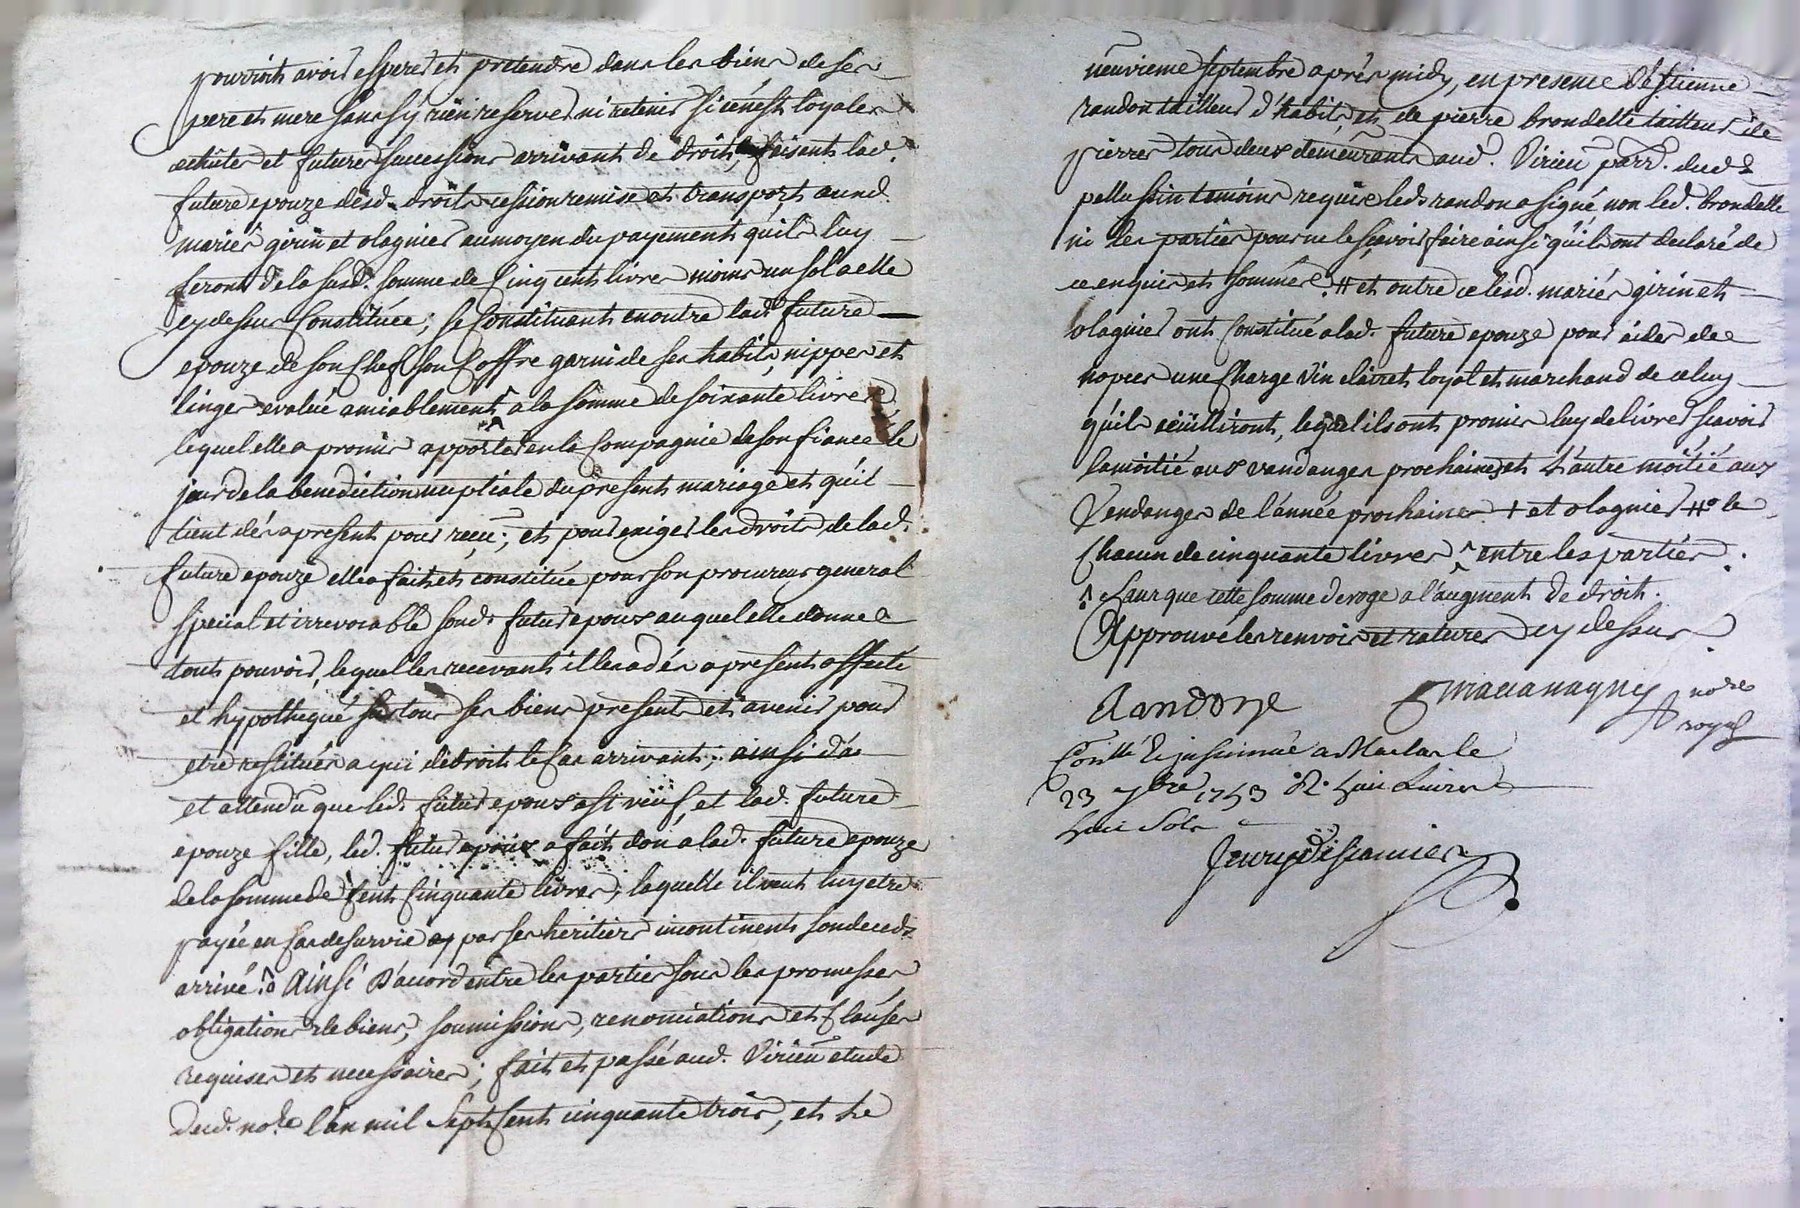 pourroit avoir esperer et pretendre dans les biens de ses
pere et mere sans s'y rien reserver ni retenir si ce n'est loyales
echutes et futures successions arrivant de droit, faisant lad.
future epouze desd. droits cession remise et transport auxd.
mariés girin et olagnier au moyen du payement qu'ils luy
feront de la susd. somme de Cinq cent livres moins un sol a elle
cy dessus Constituée; se Constituant en outre lad. future
epouze de son Chef son Coffre garni de ses habits, nippes et
linges evalué amiablement a la somme de soixante livres
lequel elle a promis apporter en la Compagnie de son fiancé le
jour de la benediction nuptiale du present mariage et qu'il
tient dés a present pour reçu; et pour exiger les droits de lad.
future epouze elle a fait et constitué pour son procureur general
special et irrevocable sond. futur epoux auquel elle donne
tout pouvoir, lequel les recevant il les a dés a present affecté
et hypothequé sur tous ses biens presents et avenir pour
etre restitués a qui de droit le Cas arrivant;
et attendu que led. futur epoux est veüf et lad. future
epouze fille, led. futur epoux a fait don a lad. future epouze
de la somme de Cent Cinquante livres, laquelle il veut luy etre
payée en Cas de survie par ses heritiers incontinent son deceds
arrivé. Ainsi D'accord entre les parties sous les promesses
obligations de biens, soumissions, renonciations et Clauses
requises et necessaires; fait et passé aud. Virieu etude
dud. no.re l'an mil Sept Cent cinquante trois, et le
neuvieme septembre aprés midy, en presence D'Estienne
randon tailleur d'habits et de pierre brondelle tailleur de
pierres tous deux demeurants aud. Virieu parr. dud.
pellussin temoins requis led. randon a signé non led. brondelle
ni les parties pour ne le sçavoir faire ainsi qu'ils ont declaré de
ce enquis et sommés. # et outre ce lesd. mariés girin et
olagnier ont Constitué a lad. future epouze pour aider de
nopces une Charge vin clairet loyal et marchand de celuy
qu'ils ceüilliront, lequel ils ont promis luy delivrer sçavoir
la moitié aux vandanges prochaines et L'autre moitié aux
Vendanges de l'année prochaine. + et olagnier # le
Chacun de cinquante livres ^ entre les parties.
Sans que cette somme deroge a l'augment de droit.
Approuvé les renvois et ratures cy dessus
Randon
Macanagny no.re royal
Con.llé & jnsinüé a Maclas le
23 7bre 1753 R. huit Livres
huit Sols